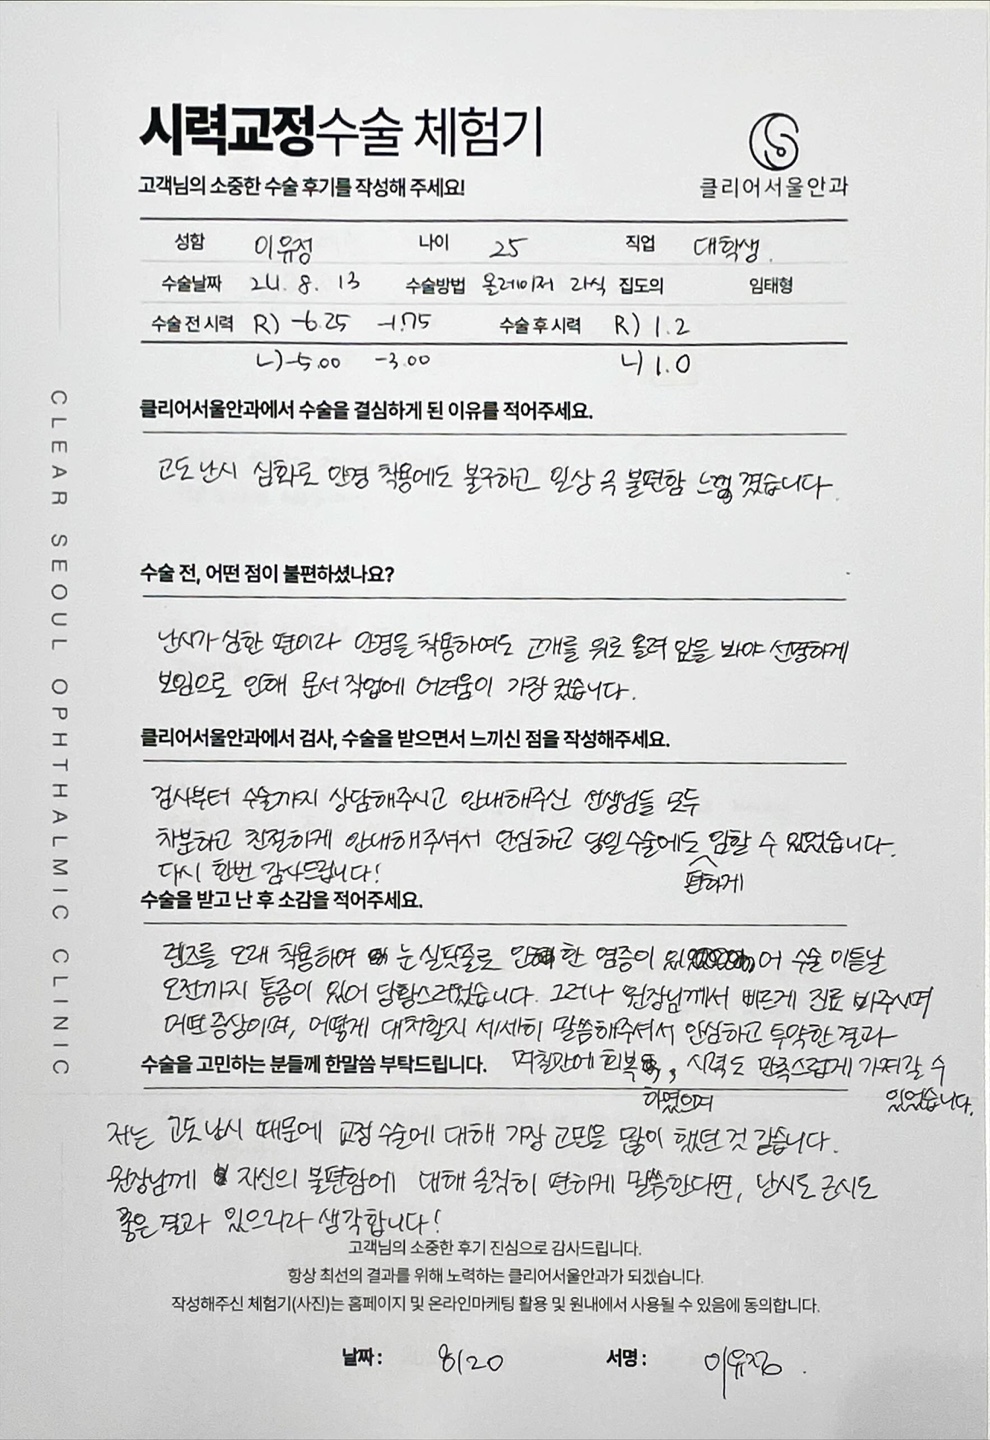 시력교정수술 체험기
고객님의 소중한 수술 후기를 작성해 주세요!
클리어서울안과
성함 이유정 나이 25 직업 대학생.
수술날짜 24. 8. 13 수술방법 올레이저 라식 집도의 임태형
수술 전 시력 R) -6.25 -1.75 수술 후 시력 R) 1.2
L) -5.00 -3.00 L) 1.0
클리어서울안과에서 수술을 결심하게 된 이유를 적어주세요.
고도난시 심화로 안경 착용에도 불구하고 일상 속 불편함 느꼈습니다.
수술 전, 어떤 점이 불편하셨나요?
난시가 심한 편이라 안경을 착용하여도 고개를 위로 올려 앞을 봐야 선명하게
보임으로 인해 문서 작업에 어려움이 가장 컸습니다.
클리어서울안과에서 검사, 수술을 받으면서 느끼신 점을 작성해주세요.
검사부터 수술까지 상담해주시고 안내해주신 선생님들 모두
차분하고 친절하게 안내해주셔서 안심하고 당일수술에도 편하게 임할 수 있었습니다.
다시 한번 감사드립니다!
수술을 받고 난 후 소감을 적어주세요.
렌즈를 오래 착용하여 눈 실핏줄로 인한 염증이 있어 수술 이튿날
오전까지 통증이 있어 당황스러웠습니다. 그러나 원장님께서 빠르게 진료 봐주시며
어떤 증상이며, 어떻게 대처할지 세세히 말씀해주셔서 안심하고 투약한 결과
며칠만에 회복하였으며, 시력도 만족스럽게 가져갈 수
있었습니다.
수술을 고민하는 분들께 한말씀 부탁드립니다.
저는 고도난시 때문에 교정 수술에 대해 가장 고민을 많이 했던 것 같습니다.
원장님께 자신의 불편함에 대해 솔직히 편하게 말씀한다면, 난시도 근시도
좋은 결과 있으리라 생각합니다!
고객님의 소중한 후기 진심으로 감사드립니다.
항상 최선의 결과를 위해 노력하는 클리어서울안과가 되겠습니다.
작성해주신 체험기(사진)는 홈페이지 및 온라인마케팅 활용 및 원내에서 사용될 수 있음에 동의합니다.
날짜 : 8/20 서명 : 이유정.
CLEAR SEOUL OPHTHALMIC CLINIC